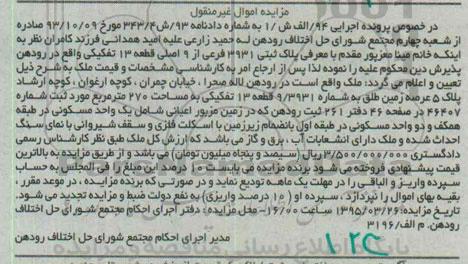 مزایده اموال غیر منقول
در خصوص پرونده اجرایی ۹۴/الف ش/۱ به شماره دادنامه ۹۳/ش۳۴۳/۴ مورخ ۹۳/۱۰/۰۹ صادره
از شعبه چهارم مجتمع شورای حل اختلاف رودهن لـه حمید زارعی علیه امید همدانی فرزند کامران نظر به
اینکه خانم مینا معزپور مقدم با معرفی پلاک ثبتی ۳۹۳۱ فرعی از ۹ اصلی قطعه ۱۳ تفکیکی واقع در رودهن
پذیرش دین محکوم علیه را نموده لذا پس از ارجاع امر به کارشناسی مشخصات و قیمت ملک به شرح ذیل
تعیین و اعلام می گردد: ملک واقع است در رودهن لاله صحرا ، خیابان چمران ، کوچه ارغوان ، کوچه ارشاد
پلاک ۵ عرصه زمین طلق به شماره ۹/۳۹۳۱ قطعه ۱۳ تفکیکی به مساحت ۲۷۰ مترمربع مورد ثبت شماره
۴۶۴۰۷ در صفحه ۴۶ دفتر ۲۶۱ ثبت رودهن که در زمین مزبور اعیانی شامل یک واحد مسکونی در طبقه
همکف و دو واحد مسکونی در طبقه اول بانضمام زیرزمین با اسکلت فلزی و سقف شیروانی با نمای سنگ
احداث شده و ملک دارای انشعابات آب ، برق و گاز می باشد که ارزش کل ملک طبق نظر کارشناس رسمی
دادگستری ۳/۵۰۰/۰۰۰/۰۰۰ریال (سیصد و پنجاه میلیون تومان) می باشد و از طریق مزایده به بالاترین
قیمت پیشنهادی فروخته می شود برنده مزایده می بایست ۱۰ درصد این مبلغ را فی المجلس به حساب
سپرده واریز و الباقی را در مهلت یک ماهه تودیع نماید و در صورتی که برنده مزایده ، در موعد مقرر ،
بقیه بهای اموال را نپردازد ، سپرده او (۱۰ درصد واریزی) به نفع دولت ضبط و مزایده تجدید می شود.
تاریخ مزایده:۱۳۹۵/۰۳/۲۶ ساعت ۱۶/۰۰- محل مزایده : دفتر اجرای احکام مجتمع شورای حل اختلاف
رودهن. م الف/۳۱۹۶
مدیر اجرای احکام مجتمع شورای حل اختلاف رودهن